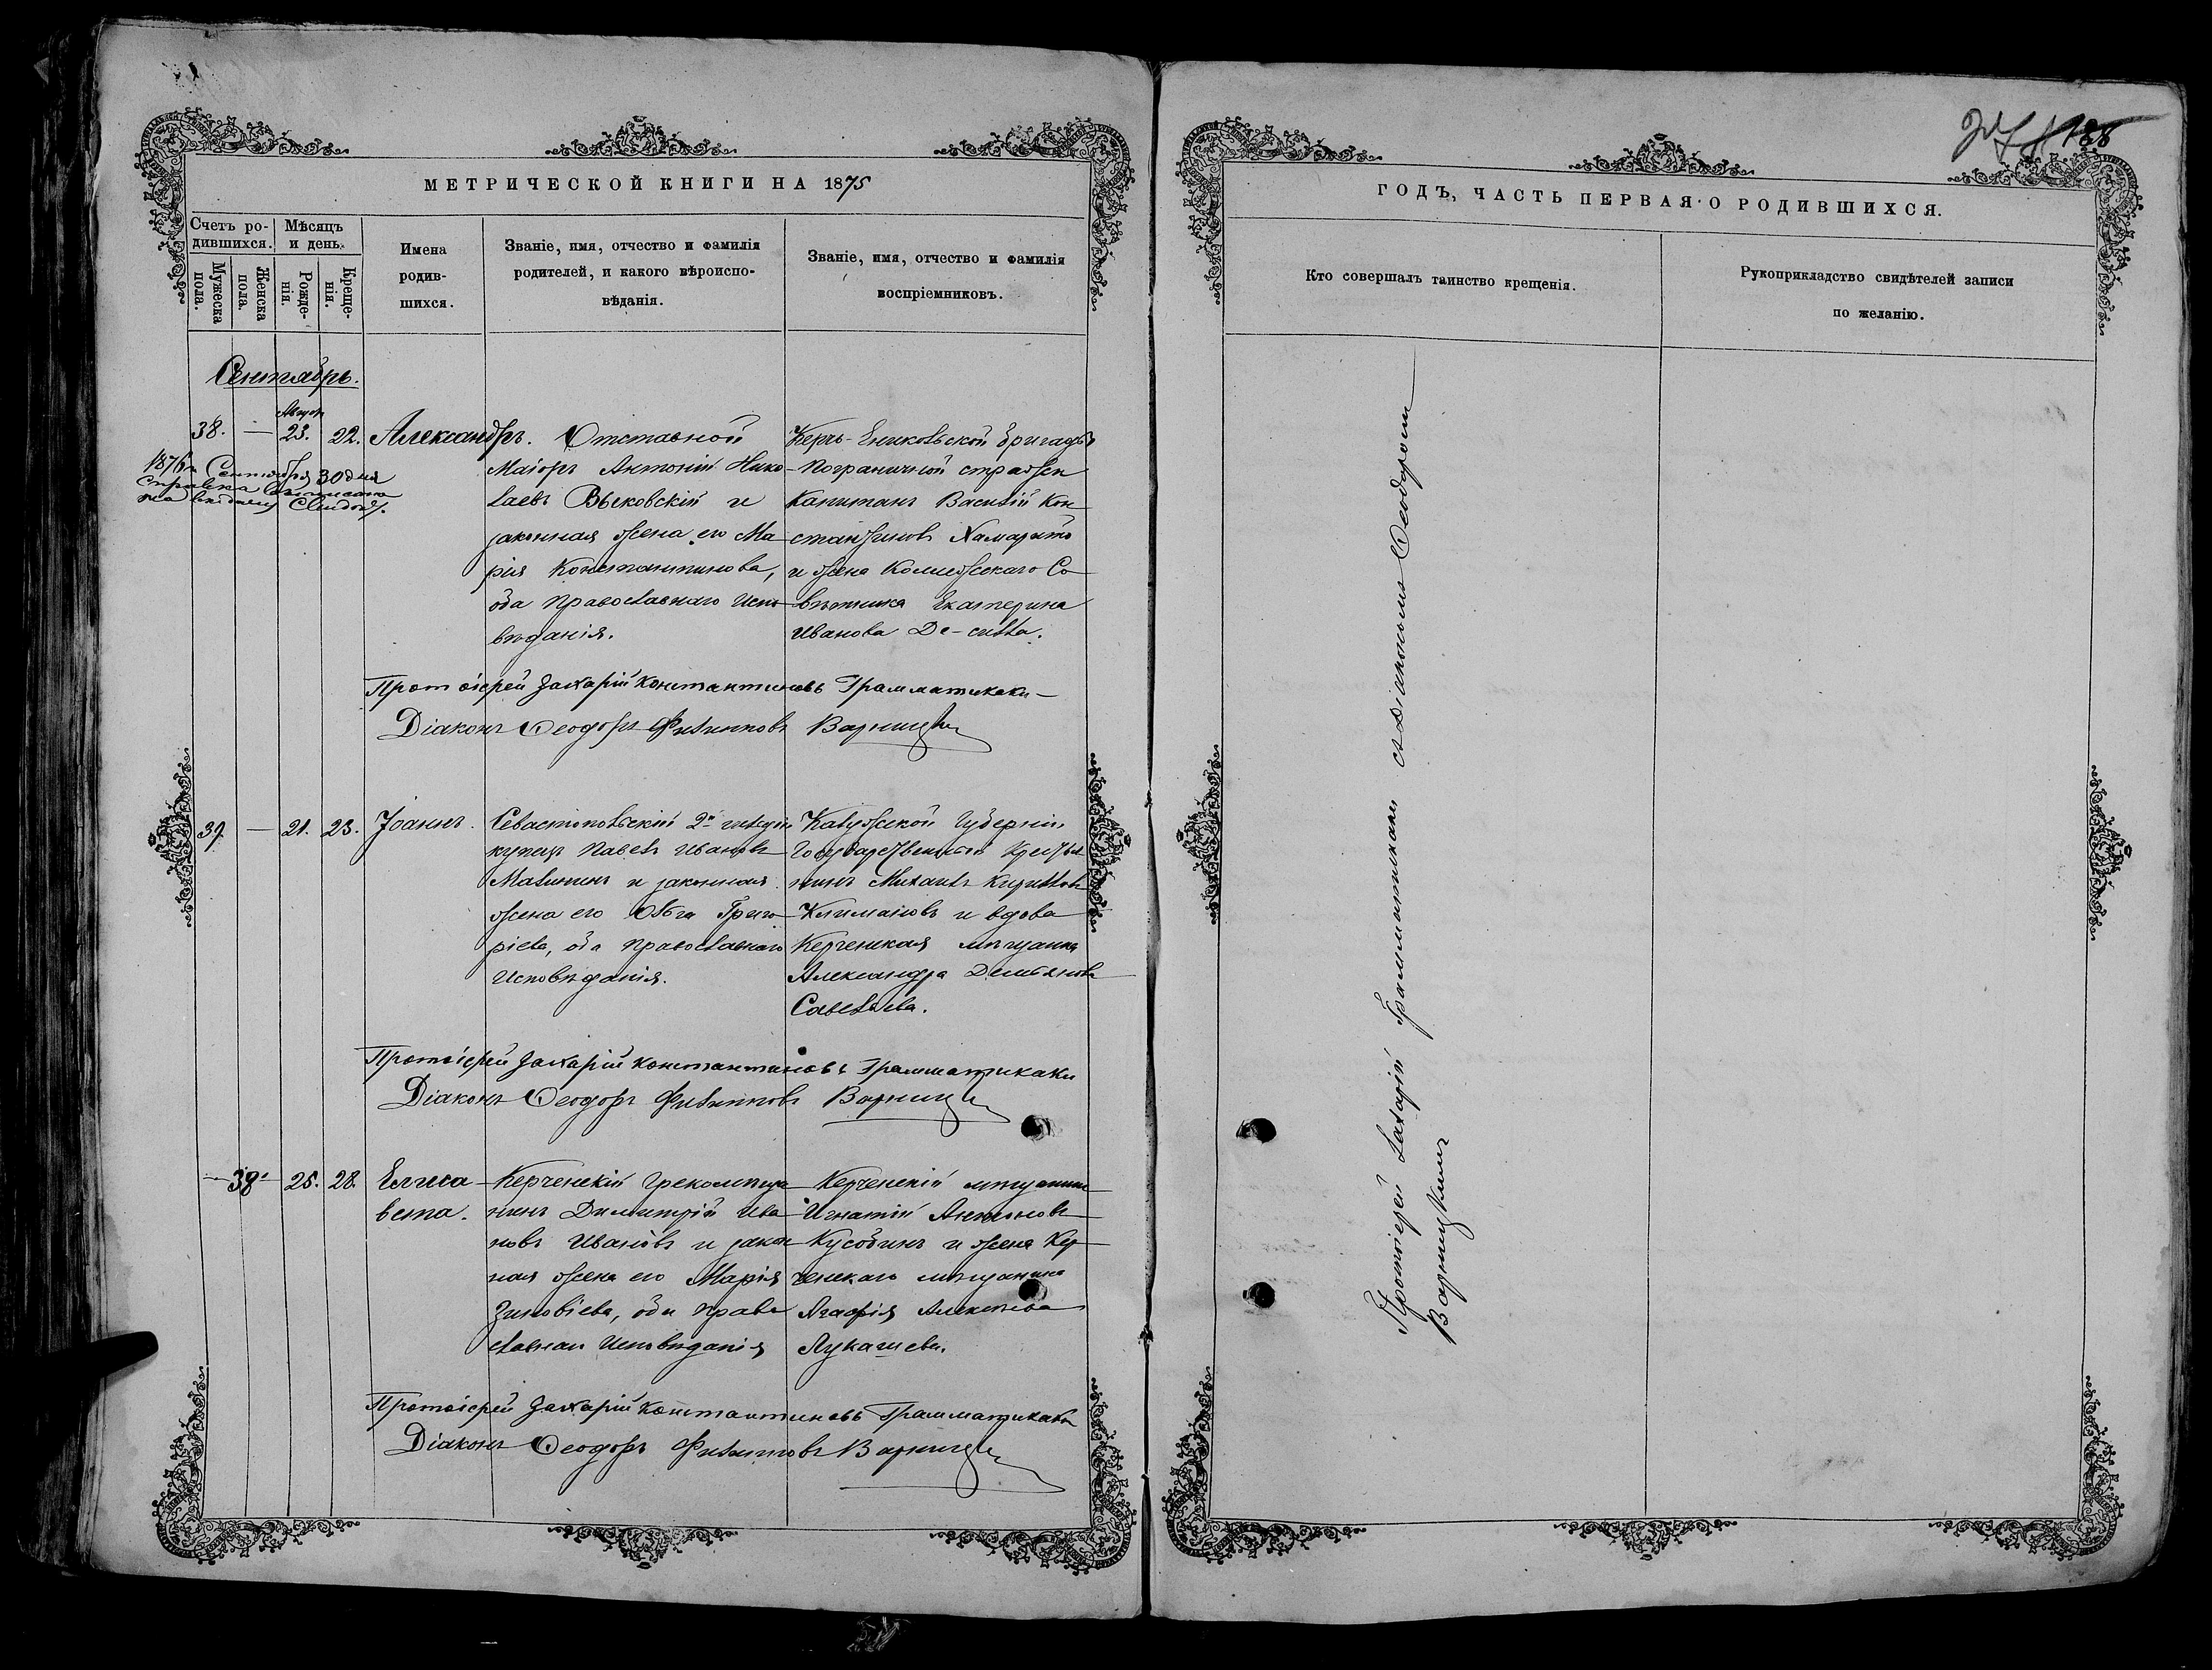 МЕТРИЧЕСКОЙ КНИГИ НА 1875
Счетъ ро-
дившихся.
Мѣсяцъ
и день.
Мужеска
пола.
Женска
пола.
Рожде-
нія.
Креще-
нія.
Имена
родив-
шихся.
Званіе, имя, отчество и фамилія
родителей, и какого вѣроиспо-
вѣданія.
Званіе, имя, отчество и фамилія
воспріемниковъ.
Сентябрь.
Август
38. — 23. 22. Александръ.
1876 Сентября 30 дня
справка
Отставной
Маіоръ Антоній Нико-
лаевъ Выковскій и
законная жена его Ма-
рія Константинова,
оба православнаго испо-
вѣданія.
Керчь-Ениковьской бригады
пограничной стражи
Капитанъ Василій Кон-
стантиновъ Хамарито
и жена Коллежскаго Со-
вѣтника Екатерина
Иванова Де-силла.
Протоіерей Захарій Константиновъ Грамматикаки
Діаконъ Ѳеодоръ Филипповъ Варницкій
39. — 21. 23. Іоаннъ.
Севастопольскій 2й гильдіи
купецъ Павелъ Ивановъ
Малининъ и законная
жена его Ольга Григо-
ріева, оба православнаго
Исповѣданія.
Калужской Губерніи
Государственный Кресть
нинъ Михаилъ Кирилловъ
Климановъ и вдова
Керченская мѣщанка
Александра Демьянова
Савельева.
Протоіерей Захарій Константиновъ Грамматикаки
Діаконъ Ѳеодоръ Филипповъ Варницкій
— 38 25. 28. Елиса
вета.
Керченскій Грекомѣща
нинъ Димитрій Ива
новъ Ивановъ и закон
ная жена его Марія
Зиновіева, оба право
славнаго Исповѣданія
Керченскій мѣщанинъ
Игнатій Антоновъ
Кусобинъ и жена Кер
ченскаго мѣщанина
Агафія Алексѣева
Лукашева.
Протоіерей Захарій Константиновъ Грамматикаки
Діаконъ Ѳеодоръ Филипповъ Варницкій
188
ГОДЪ, ЧАСТЬ ПЕРВАЯ О РОДИВШИХСЯ.
Кто совершалъ таинство крещенія.
Рукоприкладство свидѣтелей записи
по желанію.
Протоіерей Захарій Грамматикаки съ Діакономъ Ѳеодоромъ
Варницкимъ